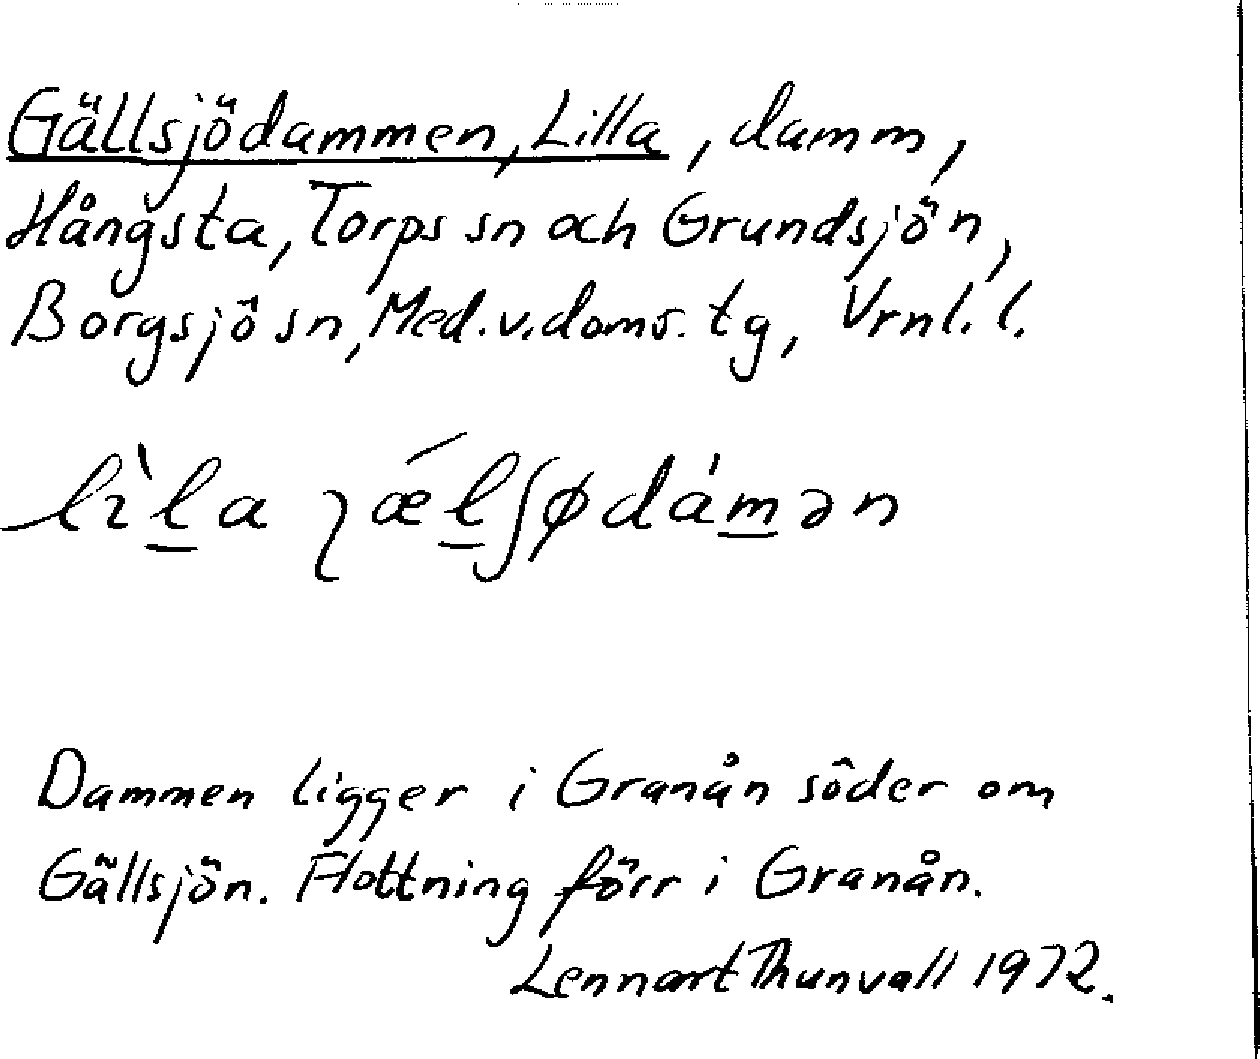 Gällsjödammen, Lilla, damm,
Hångsta, Torps sn och Grundsjön,
Borgsjö sn, Med. v. doms. tg, Vrnl. l.
lìla ɀǽlʃødámən
Dammen ligger i Granån söder om
Gällsjön. Flottning förr i Granån.
Lennart Thunvall 1972.